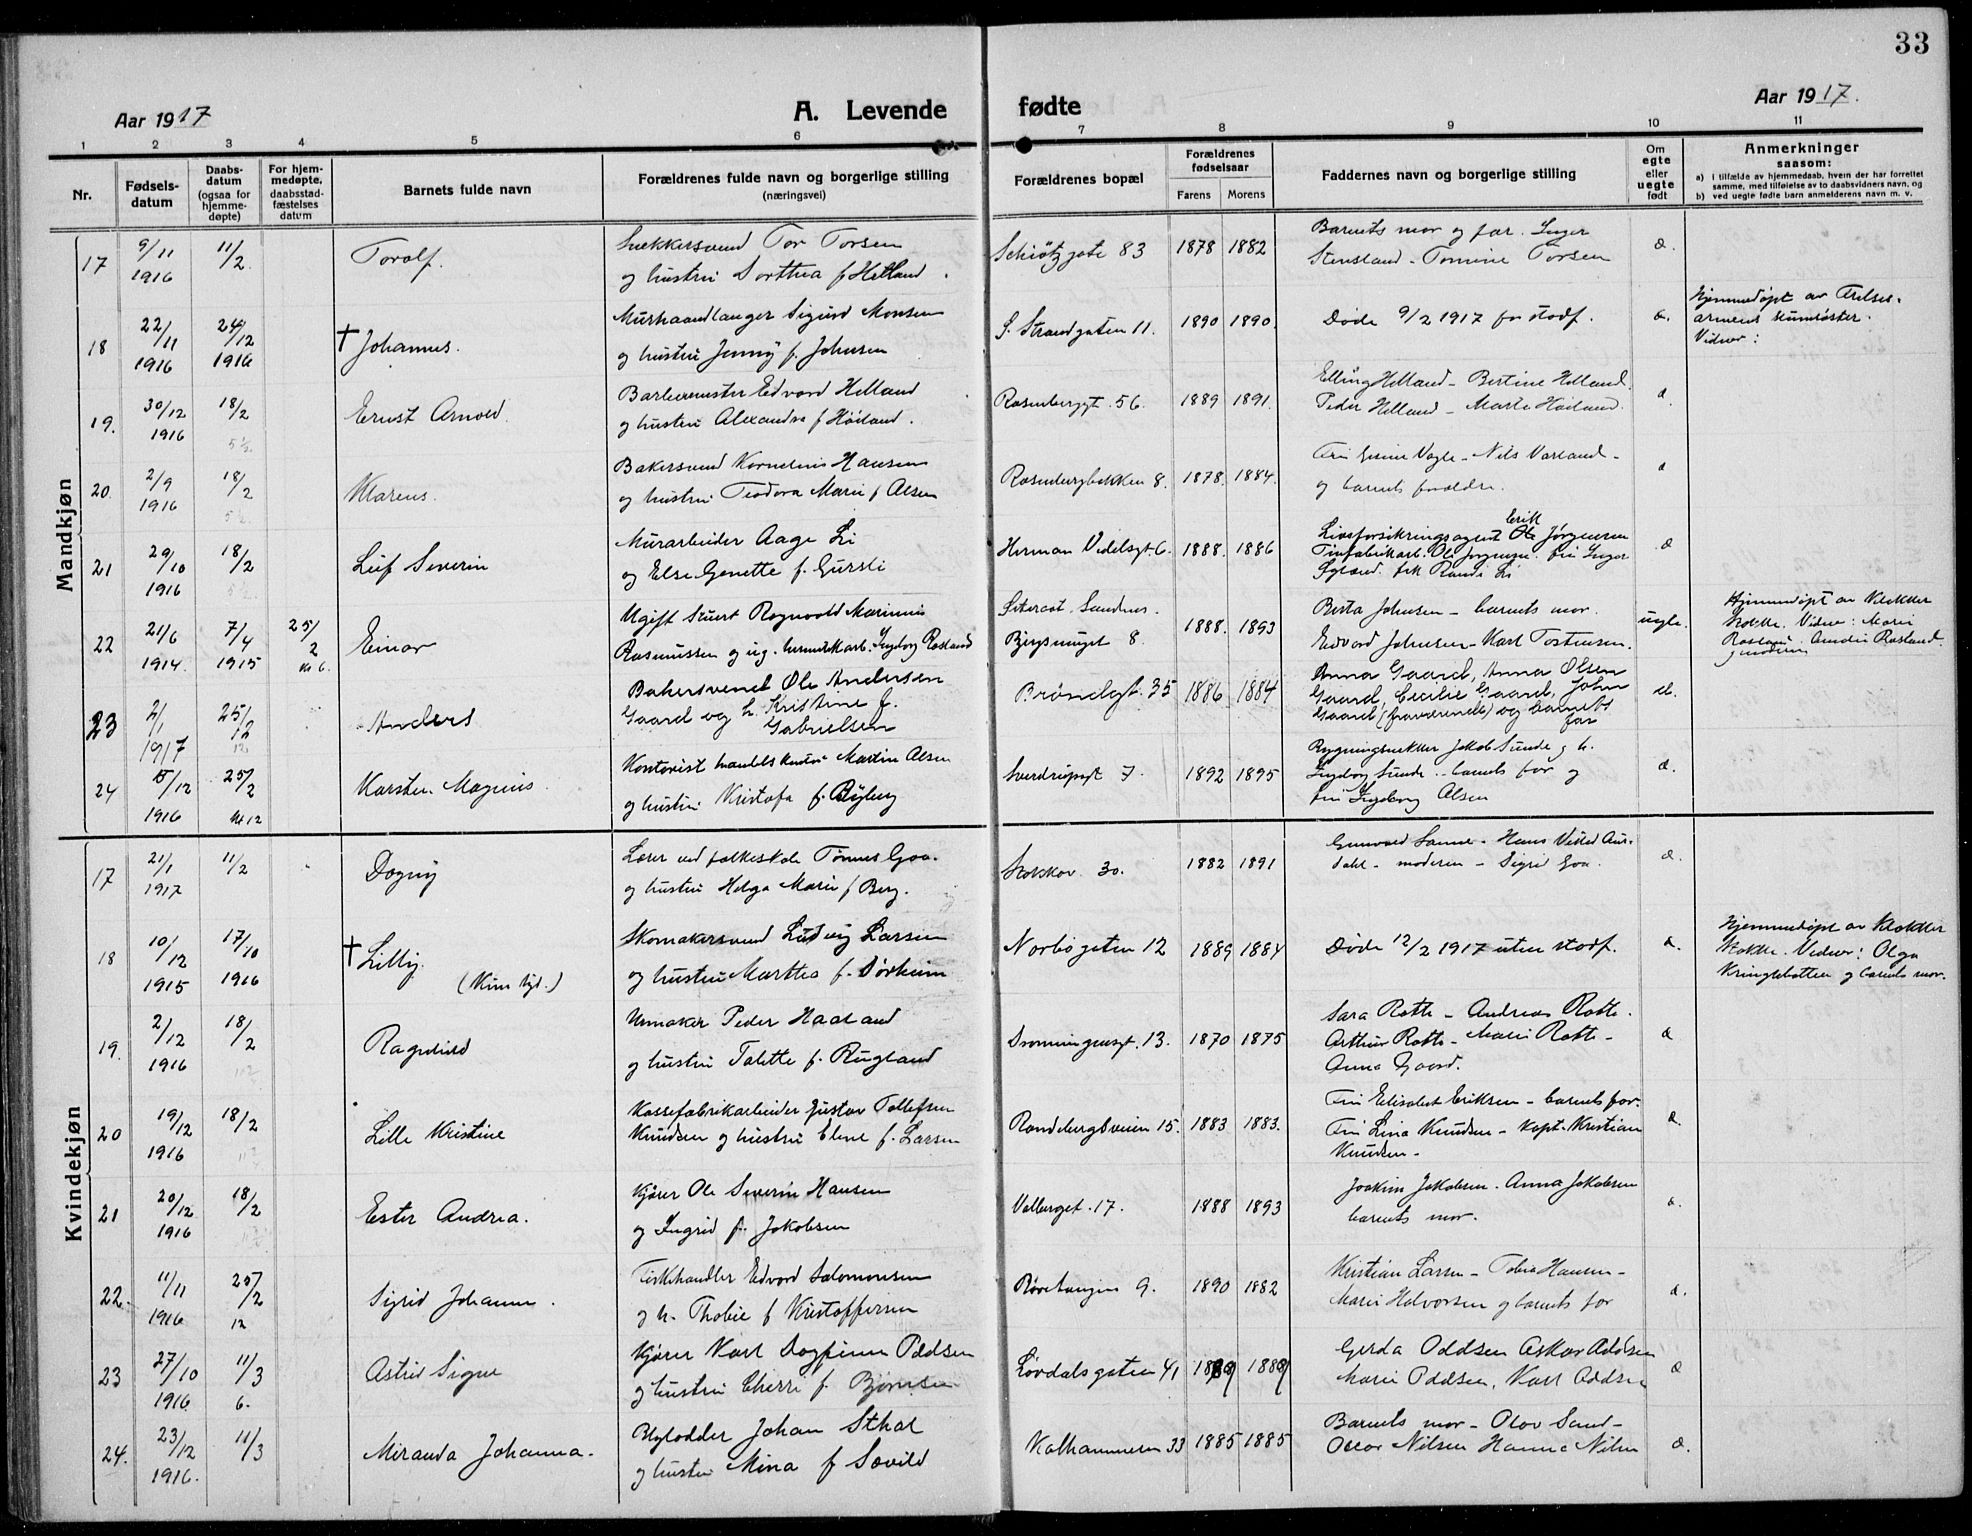 33
Aar 1917
A. Levende fødte
Aar 1917.
1 2 3 4 5 6 7 8 9 10 11
Nr.
Fødsels-
datum
Daabs-
datum
(ogsaa for
hjemme-
døpte)
For hjem-
medøpte,
daabsstad-
fæstelses
datum
Barnets fulde navn
Forældrenes fulde navn og borgerlige stilling
(næringsvei)
Forældrenes bopæl
Forældrenes
fødselsaar
Farens Morens
Faddernes navn og borgerlige stilling
Om
egte
eller
uegte
født
Anmerkninger
saasom:
a) i tilfælde av hjemmedaab, hvem der har forrettet
samme, med tilføielse av to daabsvidners navn, og
b) ved uegte fødte barn anmelderens navn m. v.
Mandkjøn
17 9/11 1916 11/2. Torolf.
Snekkersvend Tor Torsen
og hustru Dorthea f Hetland.
Schiøtzgate 83 1878 1882
Barnets mor og far. Inger
Stensland - Tomine Torsen
18 22/11 1916 24/12 1916 † Johannes.
Murhaandlanger Sigurd Monsen
og hustru Jenny f. Johnsen
S. Strandgaten 11. 1890 1890.
Døde 9/2 1917 før stadf.
Hjemmedøpt av Frelses-
armeens
Vidner:
19. 30/12 1916 18/2 Ernst Arnold.
Barbermester Edvard Helland
og hustru Alexandra f Høiland.
Rosenberggt. 56. 1889 1891.
Elling Helland - Bertine Helland.
Peder Helland - Marta Høiland.
20. 2/9 1916 18/2 Klarens.
Bakersvend Kornelius Hansen
og hustru Teodora Marie f Olsen
Rosenbergbakken 8. 1878. 1884.
Vagle - Nils Varland -
og barnets forældre.
21 29/10 1916 18/2 Leif Severin
Murarbeider Aage Li
og Else Genette f. Gursli
Herman Vedelsgt. 6. 1888. 1886
Livsforsikringsagent Erik Ole Jørgensen
Ole Jørgensen. fru Inger
frk Randi Li
22 21/6 1914. 7/4 1915 25/2 kl 6. Einar
Ugift Stuert Ragnvald Marinius
Rasmussen og ug. hermetikarb. Ingborg Rosland
Sandnes.
Bjergsmuget 8 1888. 1893
Berta Johnsen - barnets mor.
Edvard Johnsen - Karl Tostensen.
uegte.
Hjemmedøpt av Klokker
Stokke. Vidner: Marie
Rosland. Amalie Rosland.
23 2/1 1917 25/2 12 Anders
Bakersvend Ole Andersen
Gaard og h. Kristine f.
Gabrielsen
Brøndgt. 35 1886 1884
Anna Gaard, Anna Olsen
Gaard, Cecilie Gaard, John
Gaard (fraværende) og barnets
far
24 15/12 1916 25/2 kl 12 Karsten Magnus.
Kontorist Martin Olsen
og hustru Kristofa f. Byberg
Sverdrupsgt 7. 1892 1895
Bygningssnekker Jakob Sunde og h.
Ingborg Sunde - barnets far og
fru Ingeborg Olsen
Kvindekjøn
17 21/1 1917 11/2 Dagny
Lærer ved folkeskole Tønnes Goa.
og hustru Helga Marie f Berg.
Stokkav. 30. 1882 1891
Gunvald Sanne - Hans Vilhd Aur-
dahl - moderen - Sigrid Goa.
18 10/12 1915 17/10 1916 † Lilly. (Kim tvl.)
Skomakersvend Ludvig Larsen
og hustru Marthea f. Sørheim
Norbøgaten 12 1889 1884
Døde 12/2 1917 uten stadf.
Hjemmedøpt av Klokker
Stokke. Vidner: Olga
Kringlebotten og barnets mor.
19. 2/12 1916 18/2 Ragnhild
Urmaker Peder Haaland
og hustru Talette f. Rugland
Dronningensgt. 13. 1870 1875
Sara Rotte - Andreas Rotte.
Arthur Rotte - Marie Rotte -
Anna Gaard.
20 19/12 1916 18/2 Lille Kristine
Kassefabrikarbeider Gustav Tollefsen
Knudsen og hustru Elene f. Larsen
Randebergsveien 15. 1883 1883.
Fru Elisabet Eriksen - barnets far.
Fru Lina Knudsen - Kapt. Kristian
Knudsen -
21 20/12 1916 18/2 Ester Andrea.
Kjører Ole Severin Hansen
og Ingrid f. Jakobsen
Valberget. 17. 1888 1893
Joakim Jakobsen. Anna Jakobsen
barnets mor.
22. 11/11 1916 25/2 12 Sigrid Johanne.
Fiskehandler Edvard Salomonsen
og h. Thobie f Kristoffersen
9. 1890 1882
Kristian Larsen - Tobia Hansen -
Marie Halvorsen og barnets far
23 27/10 1916. 11/3 6. Astrid Signe
Kjører Karl Dagfinn Oddsen
og hustru Cherri f. Bjørnsen
Løvdalsgaten 41 1889 1889
Gerda Oddsen Askar Oddsen
Marie Oddsen, Karl Oddsen
24. 23/12 1916. 11/3 Miranda Johanna.
Johan Sthal
og hustru Mina f Søvild
Kalhammeren 33 1885 1885
Barnets mor - Olav Sand -
Oscar Nilsen Hanna Nilsen